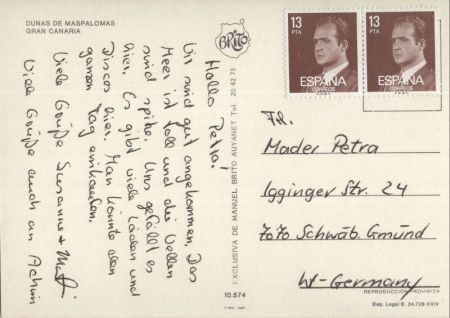 DUNAS DE MASPALOMAS
GRAN CANARIA
BRITO
Hallo Petra!
Wir sind gut angekommen. Das
Meer ist toll und die Wellen
sind spitze. Uns gefällt es
hier. Es gibt viele Läden und
Discos hier. Man könnte den
ganzen Tag einkaufen.
Viele Grüße Susanne +
Viele Grüße auch an Achim
EXCLUSIVA DE MANUEL BRITO AUYANET Tel. 20 42 75
10.574
13
PTA
ESPAÑA
CORREOS
13
PTA
ESPAÑA
CORREOS
Frl.
Mader Petra
Igginger Str. 24
7070 Schwäb. Gmünd
W-Germany
REPRODUCCION PROHIBIDA
Dep. Legal B. 24.728-XXIV